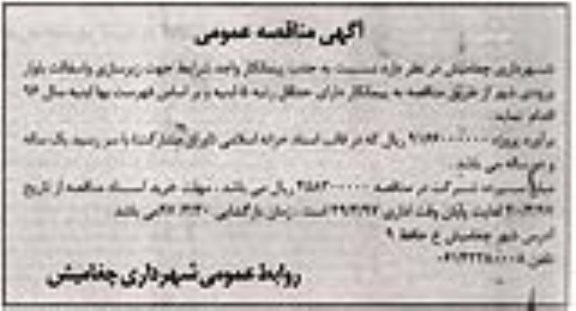 آگهی مناقصه عمومی
شهرداری چغامیش در نظر دارد نسبت به جذب پیمانکار واجد شرایط جهت زیرسازی و آسفالت بلوار
ورودی شهر از طریق مناقصه به پیمانکار دارای حداقل رتبه ۵ ابنیه و بر اساس فهرست بها ابنیه سال ۹۶
اقدام نماید
برآورد پروژه ریال که در قالب اسناد خزانه اسلامی (اوراق مشارکت) با سر رسید یک ساله
و دو ساله می باشد
مبلغ سپرده شرکت در مناقصه ریال می باشد . مهلت خرید اسناد مناقصه از تاریخ
لغایت پایان وقت اداری است . زمان بازگشایی می باشد
آدرس شهر چغامیش خ حافظ ۹
تلفن
روابط عمومی شهرداری چغامیش